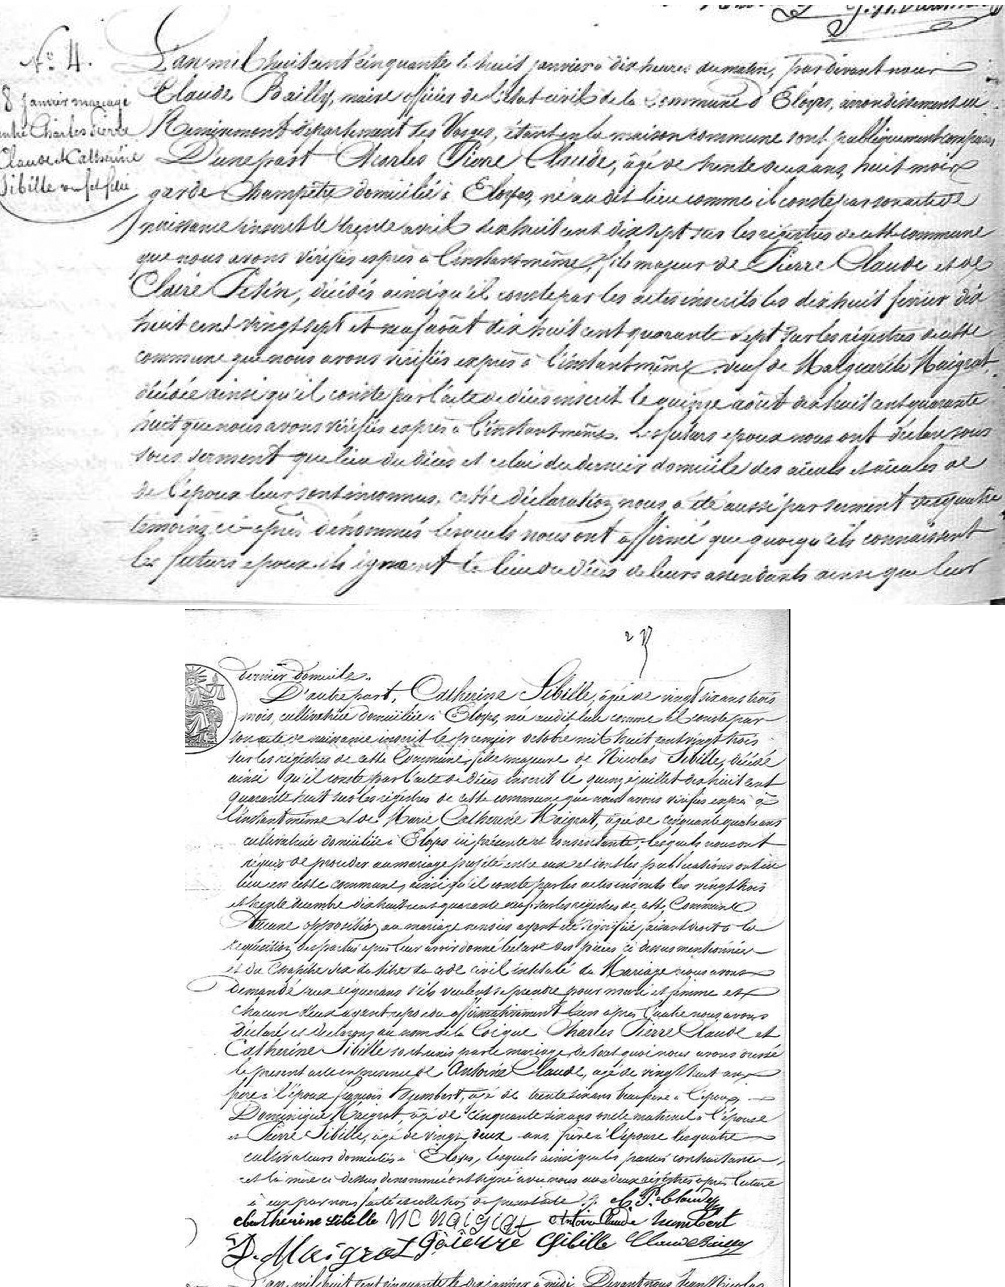 N° 4.
8 janvier mariage
entre Charles Pierre
Claude et Catherine
Sibille
L'an mil huit cent cinquante le huit janvier à dix heures du matin, par devant nous
Claude Bailly, maire officier de l'état civil de la commune d'Eloyes, arrondissement de
Remiremont département des Vosges, étant en la maison commune sont publiquement comparus
D'une part Charles Pierre Claude, âgé de trente deux ans, huit mois
garde champêtre domicilié à Eloyes, né au dit lieu comme il conste par son acte de
naissance inscrit le trente avril dix huit cent dix sept sur les régistres de cette commune
que nous avons vérifiés exprès à l'instant même, fils majeur de Pierre Claude et de
Claire Petin, décédés ainsi qu'il conste par les actes inscrits les dix huit février dix
huit cent vingt sept et neuf août dix huit cent quarante sept sur les régistres de cette
commune que nous avons vérifiés exprès à l'instant même veuf de Marguerite Maigrat
décédée ainsi qu'il conste par l'acte de décès inscrit le quinze août dix huit cent quarante
huit que nous avons vérifiés exprès à l'instant même. Les futurs époux nous ont déclaré sous
sous serment que lieu du décès et celui du dernier domicile des aïeuls et aïeules de
de l'époux leur sont inconnus, cette déclaration nous a été aussi par serment des quatre
témoins ci-après dénommés lesquels nous ont affirmé que quoiqu'ils connaissent
les futurs époux ils ignorent le lieu du décès de leurs ascendants ainsi que leur
dernier domicile.
D'autre part, Catherine Sibille, âgée de vingt six ans trois
mois, cultivatrice domiciliée à Eloyes, née au dit lieu comme il conste par
son acte de naissance inscrit le premier octobre mil huit cent vingt trois
sur les régistres de cette Commune, fille majeure de Nicolas Sibille, décédé
ainsi qu'il conste par l'acte de décès inscrit le quinze juillet dix huit cent
quarante huit sur les régistres de cette commune que nous avons vérifiés exprès à
l'instant même et de Marie Catherine Maigrat, âgée de cinquante quatre ans
cultivatrice domiciliée à Eloyes ici présente et consentante; lesquels nous ont
requis de procéder au mariage projeté entre eux et dont les publications ont eu
lieu en cette commune, ainsi qu'il conste par les actes inscrits les vingt trois
et trente décembre dix huit cent quarante neuf sur les régistres de cette Commune
Aucune opposition au mariage ne nous ayant été signifiée faisant droit à la
requisition des parties après leur avoir donné lecture des pièces ci dessus mentionnées
et du Chapitre six du titre du code civil intitulé du Mariage nous avons
demandé aux requérans s'ils veulent se prendre pour mari et femme et
chacun d'eux ayant répondu affirmativement l'un après l'autre nous avons
déclaré et déclarons au nom de la loi que Charles Pierre Claude et
Catherine Sibille sont unis par le mariage de tout quoi nous avons dressé
le présent acte en présence de Antoine Claude, âgé de vingt huit ans
frère à l'époux François Humbert, âgé de trente six ans beau frère à l'époux
Dominique Maigrat âgé de cinquante six ans oncle maternel à l'épouse
et Pierre Sibille, âgé de vingt deux ans frère à l'épouse lesquatre
cultivateurs domiciliés à Eloyes, lesquels ainsi que les parties contractantes
et la mère ci dessus dénommée ont signé avec nous aux deux régistres après lecture
à eux par nous faite et collation du présent acte C. P. Claude
Catherine Sibille MC Maigrat Antoine Claude Humbert
D. Maigrat Sibille Claude Bailly
L'an mil huit cent cinquante le dix janvier à midi Devant nous Jean Nicolas